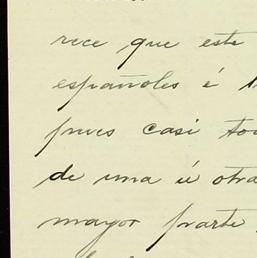 rece que este
españoles é
pues casi to
de una ú otra
mayor parte